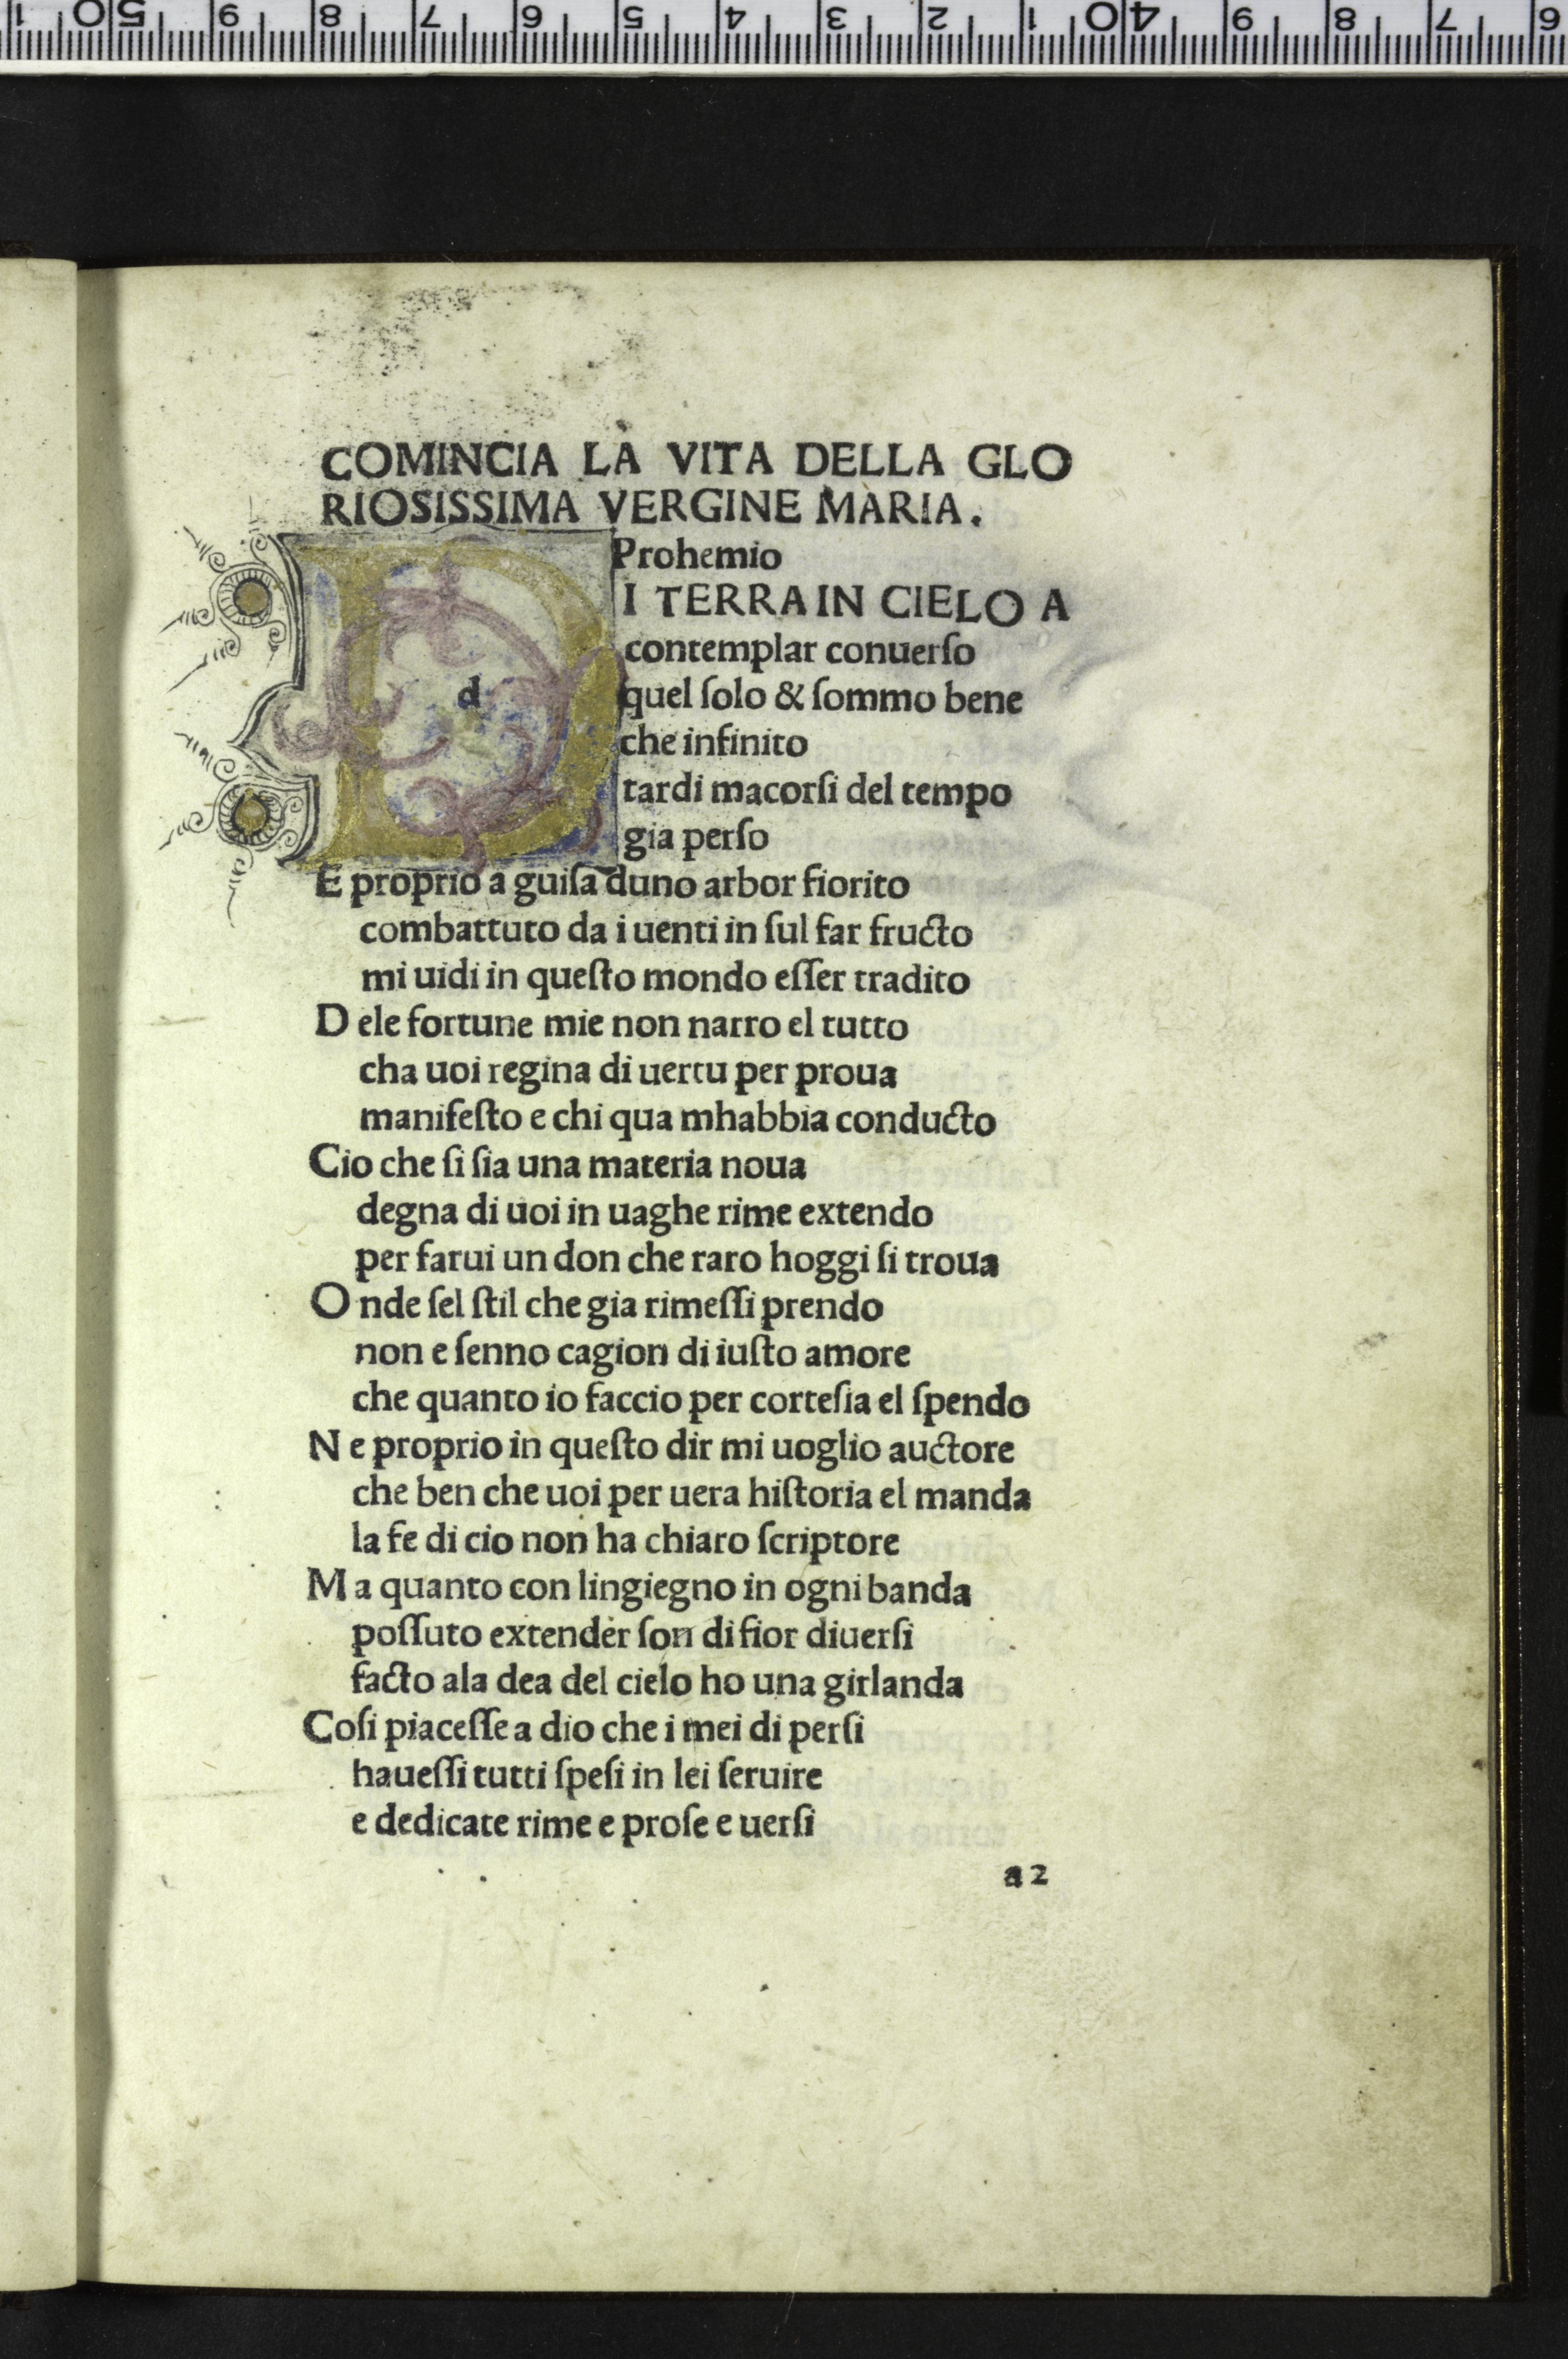 1 50 9 8 7 6 5 4 3 2 1 40 9 8 7 6
COMINCIA LA VITA DELLA GLO
RIOSISSIMA VERGINE MARIA.
Prohemio
d
I TERRA IN CIELO A
contemplar conuerſo
quel ſolo & ſommo bene
che infinito
tardi macorſi del tempo
gia perſo
E proprio a guiſa duno arbor fiorito
combattuto da i uenti in ſul far fructo
mi uidi in queſto mondo eſſer tradito
D ele fortune mie non narro el tutto
cha uoi regina di uertu per proua
manifeſto e chi qua mhabbia conducto
Cio che ſi ſia una materia noua
degna di uoi in uaghe rime extendo
per farui un don che raro hoggi ſi troua
O nde ſel ſtil che gia rimeſſi prendo
non e ſenno cagion di iuſto amore
che quanto io faccio per corteſia el ſpendo
N e proprio in queſto dir mi uoglio auctore
che ben che uoi per uera hiſtoria el manda
la fe di cio non ha chiaro ſcriptore
M a quanto con lingiegno in ogni banda
poſſuto extender ſon di fior diuerſi
facto ala dea del cielo ho una girlanda
Coſi piaceſſe a dio che i mei di perſi
haueſſi tutti ſpeſi in lei ſeruire
e dedicate rime e proſe e uerſi
a 2